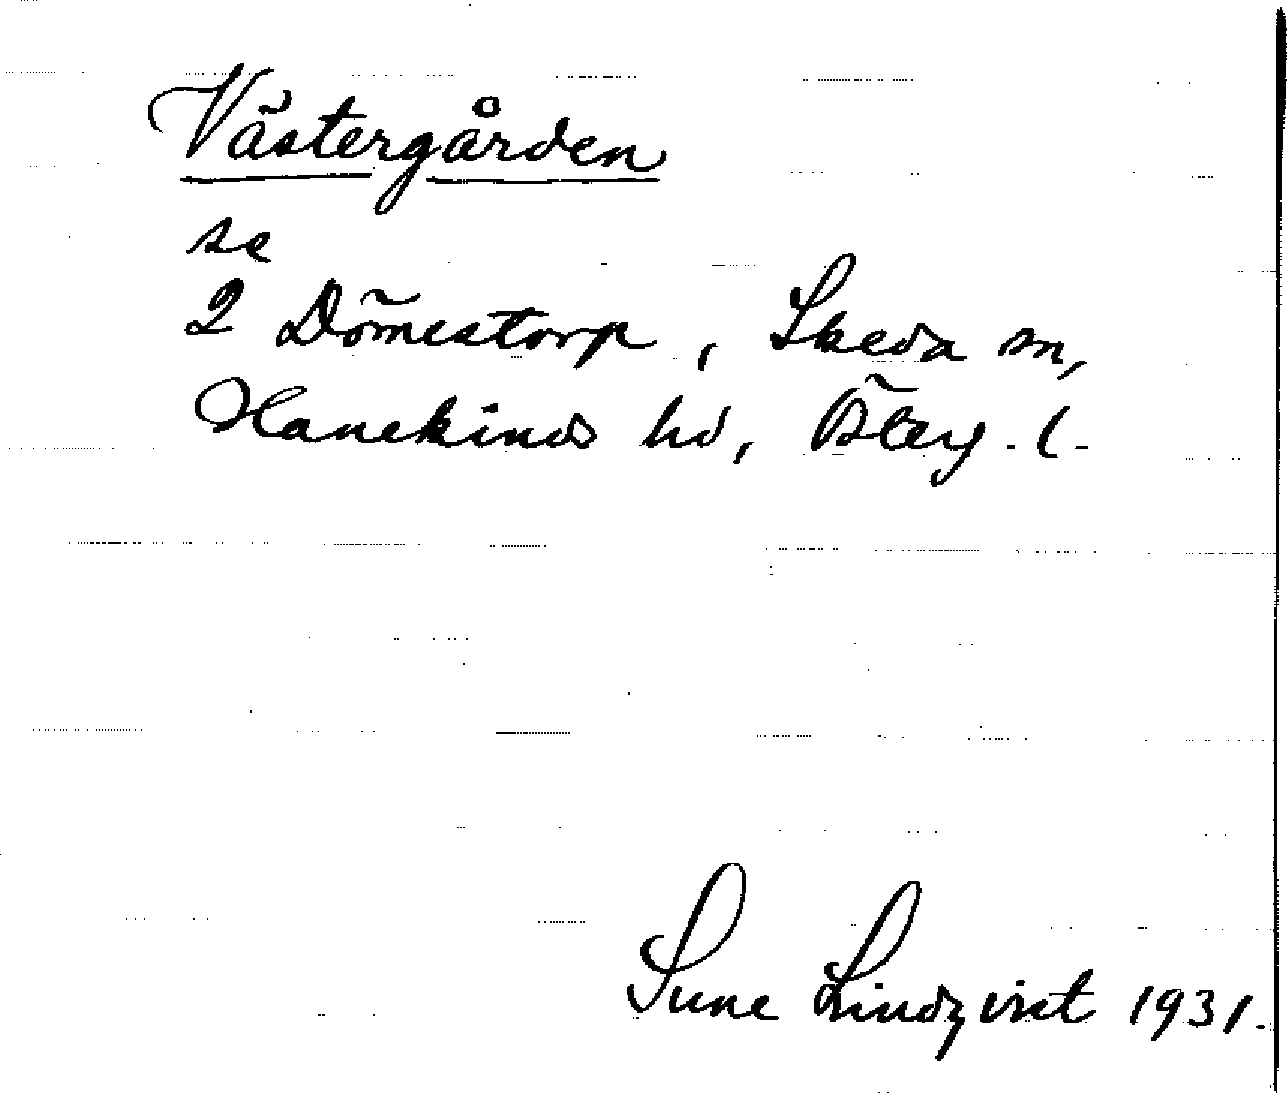 Västergården
se
2 Dömestorp, Skeda sn,
Hanekinds hd, Östg. l.
Sune Lindqvist 1931.